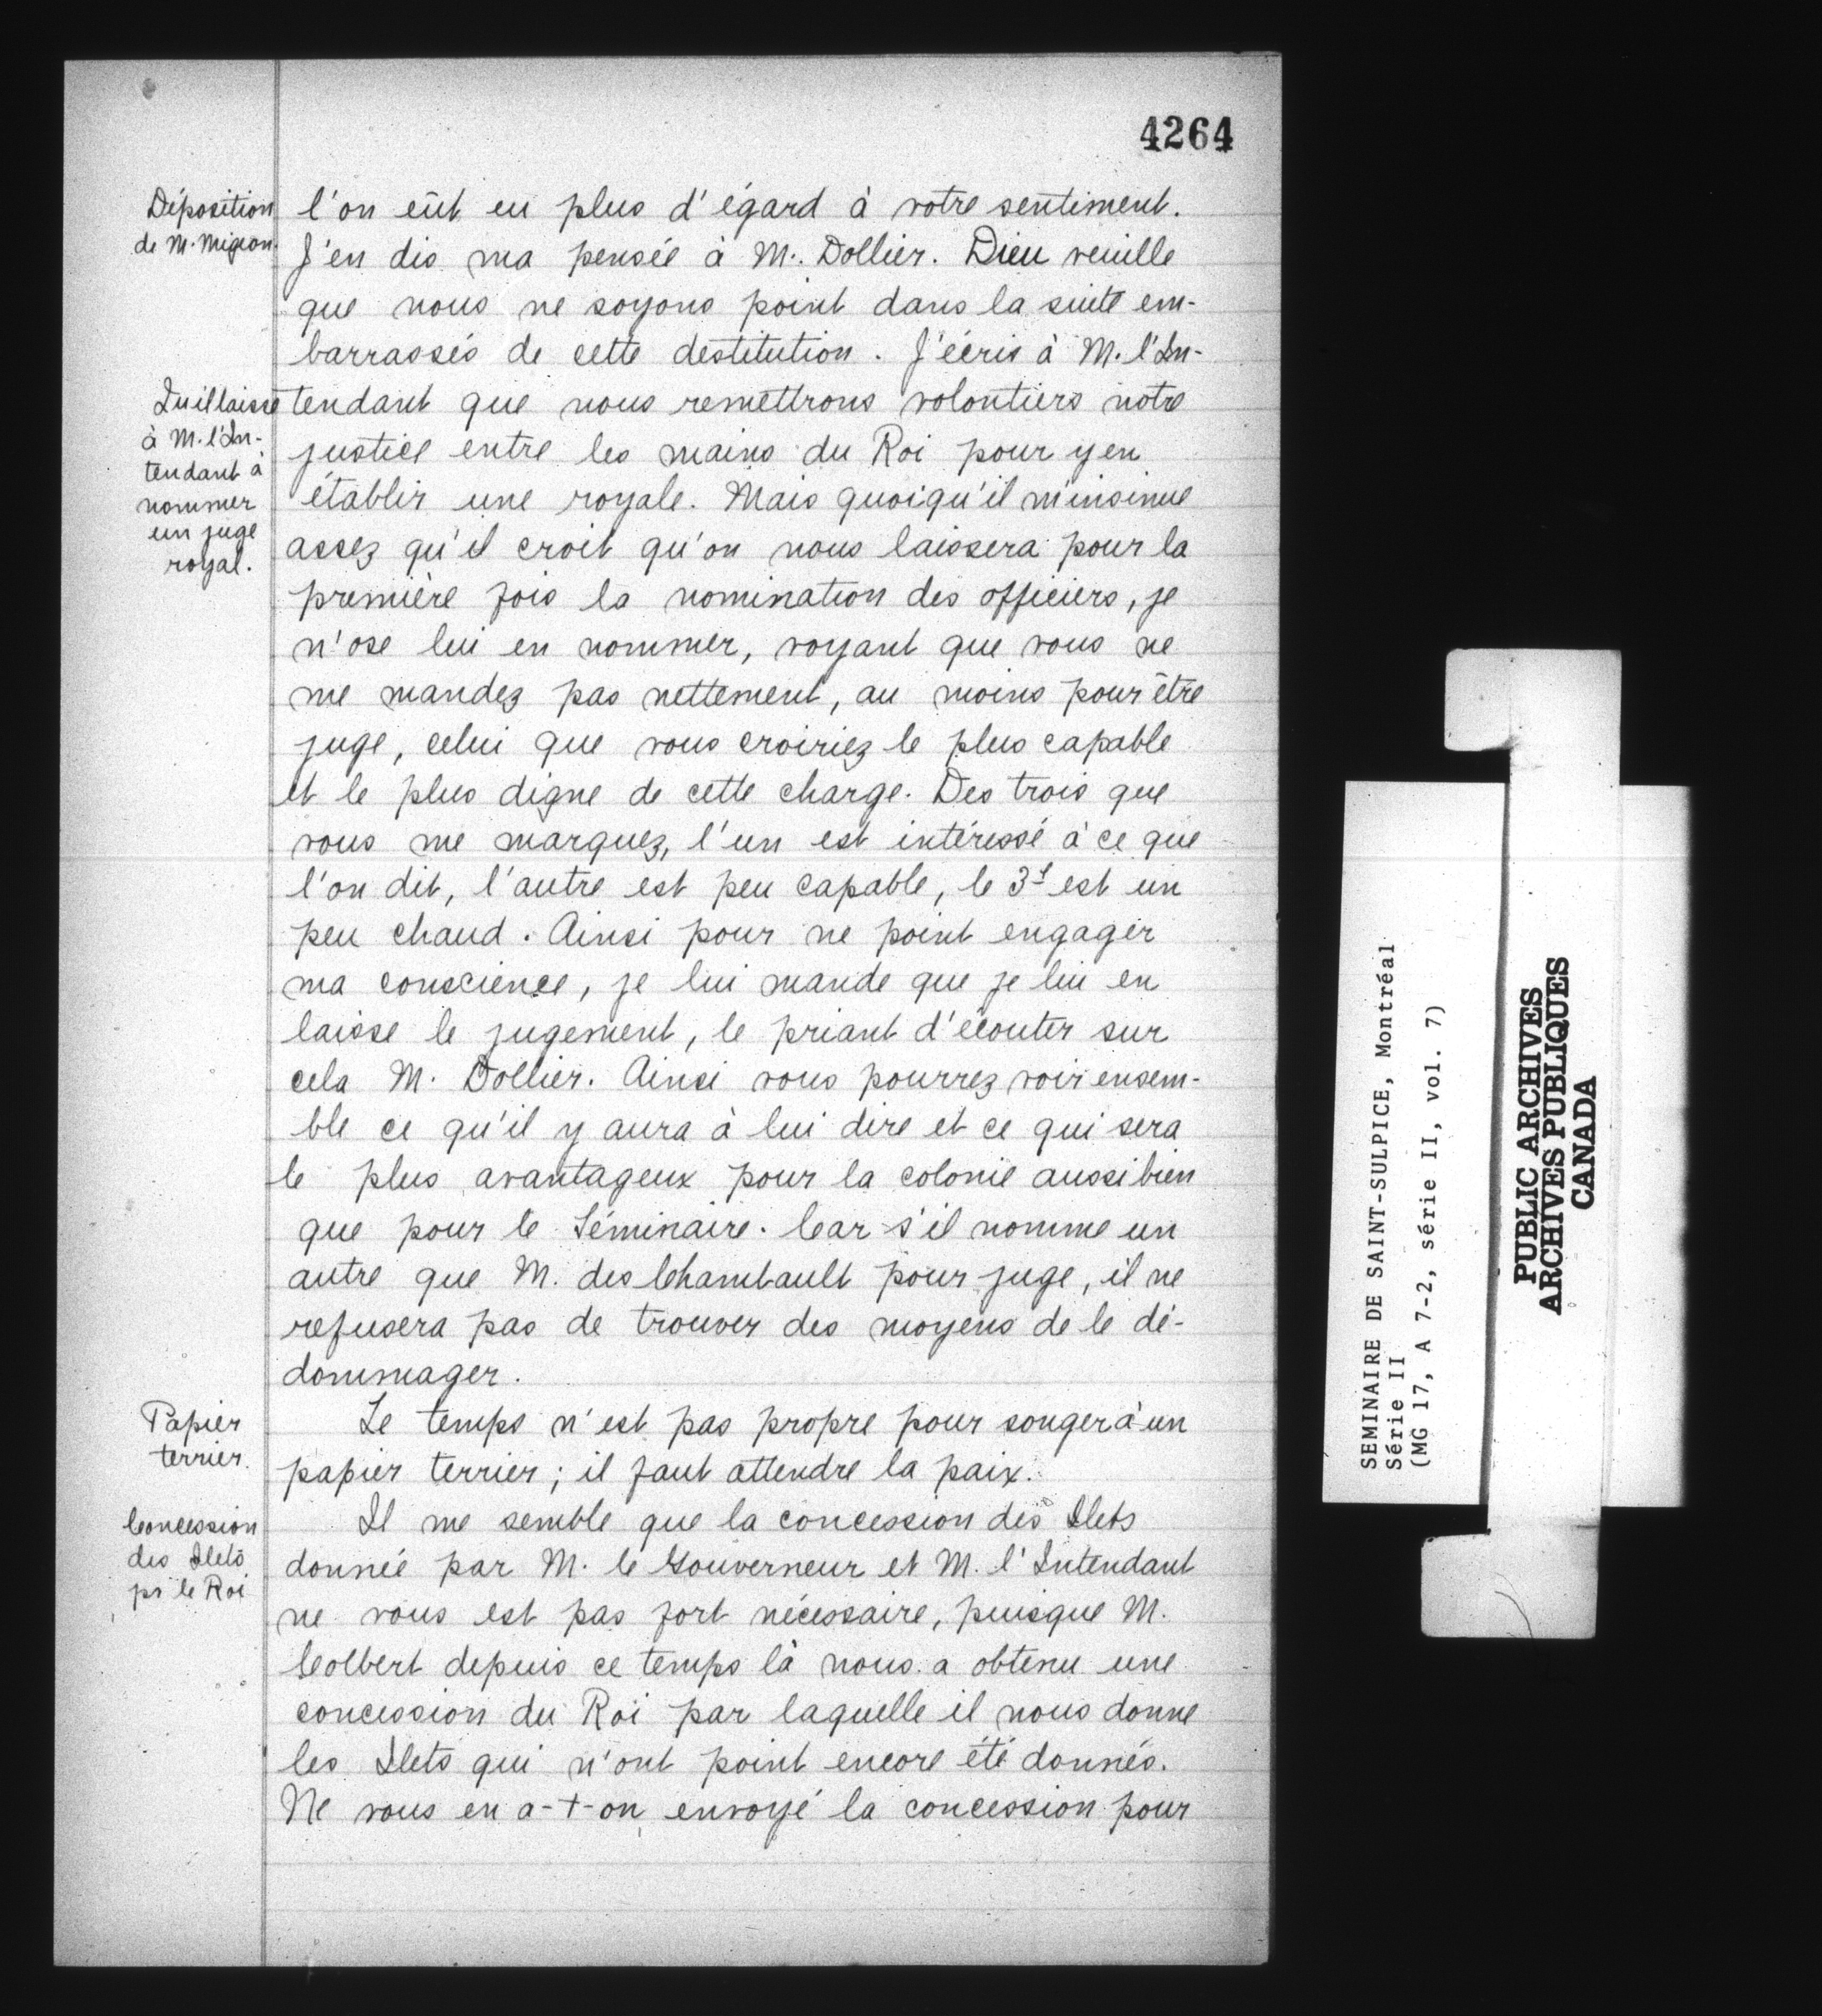 4264
Déposition
de M. Migeon.
l'on eût eu plus d'égard à votre sentiment.
J'en dis ma pensée à M. Dollier. Dieu veuille
que nous ne soyons point dans la suite em-
barrassés de cette destitution. J'écris à M. l'In-
Qu'il laisse
à M. l'In-
tendant à
nommer
un juge
royal.
tendant que nous remettrons volontiers notre
justice entre les mains du Roi pour y en
établir une royale. Mais quoiqu'il m'insinue
assez qu'il croit qu'on nous laissera pour la
première fois la nomination des officiers, je
n'ose lui en nommer, voyant que vous ne
me mandez pas nettement, au moins pour être
juge, celui que vous croiriez le plus capable
et le plus digne de cette charge. Des trois que
vous me marquez, l'un est intéressé à ce que
l'on dit, l'autre est peu capable, le 3e est un
peu chaud. Ainsi pour ne point engager
ma conscience, je lui mande que je lui en
laisse le jugement, le priant d'écouter sur
cela M. Dollier. Ainsi vous pourrez voir ensem-
ble ce qu'il y aura à lui dire et ce qui sera
le plus avantageux pour la colonie aussi bien
que pour le Séminaire. Car s'il nomme un
autre que M. des Chambault pour juge, il ne
refusera pas de trouver des moyens de le dé-
dommager.
Papier
terrier.
Le temps n'est pas propre pour songer à un
papier terrier; il faut attendre la paix.
Concession
des Ilets
pr le Roi
Il me semble que la concession des Ilets
donnée par M. le Gouverneur et M. l'Intendant
ne vous est pas fort nécessaire, puisque M.
Colbert depuis ce temps là nous a obtenu une
concession du Roi par laquelle il nous donne
les Ilets qui n'ont point encore été donnés.
Ne vous en a-t-on envoyé la concession pour
SEMINAIRE DE SAINT-SULPICE, Montréal
Série II
(MG 17, A 7-2, série II, vol. 7)
PUBLIC ARCHIVES
ARCHIVES PUBLIQUES
CANADA